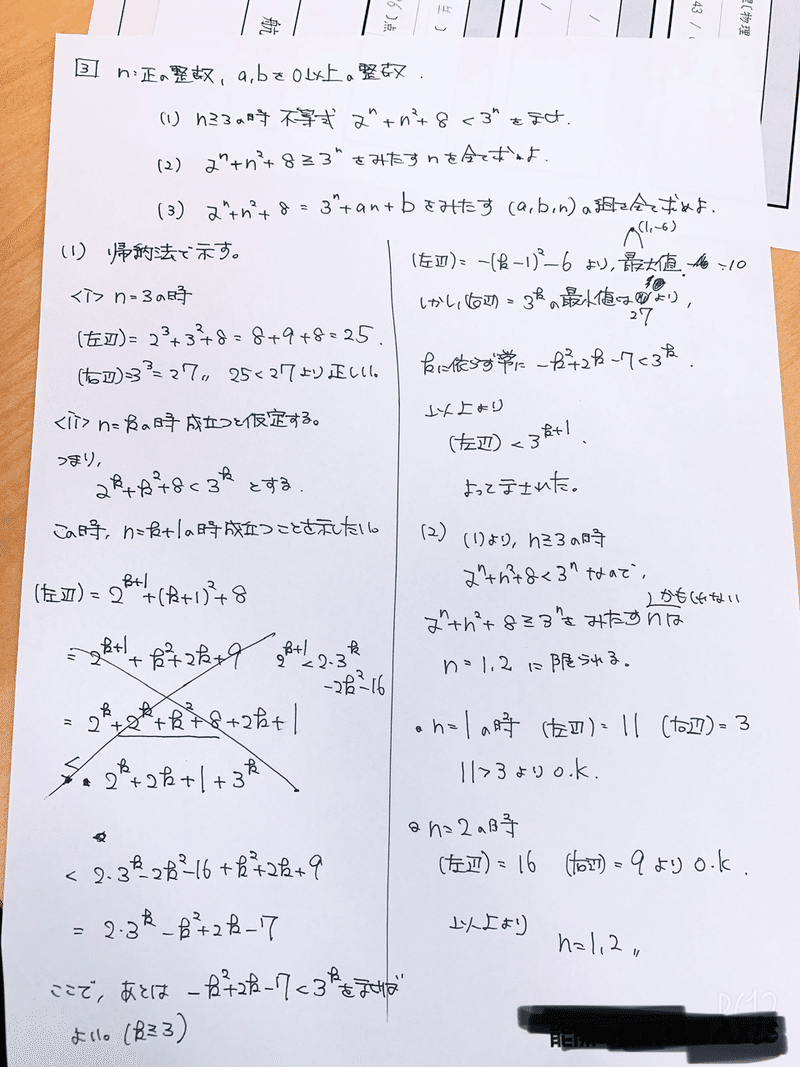 (物理
43 /
6)点
航
3 n:正の整数, a,bを0以上の整数.
(1) n≧3の時 不等式 2^n+n^2+8 < 3^n を示せ.
(2) 2^n+n^2+8≧3^n をみたすnを全て求めよ.
(3) 2^n+n^2+8 = 3^n+an+b をみたす (a,b,n)の組を全て求めよ.
(1) 帰納法で示す。
<i> n=3の時
(左辺)= 2^3+3^2+8=8+9+8=25.
(右辺)=3^3=27〃 25<27より正しい。
<ii> n=kの時成立つと仮定する。
つまり,
2^k+k^2+8<3^k とする.
この時, n=k+1の時成立つことを示したい。
(左辺)= 2^{k+1}+(k+1)^2+8
= 2^{k+1}+k^2+2k+9
2^{k+1}<2・3^k
-2k^2-16
= 2^k+2^k+k^2+8+2k+1
< 2^k+2k+1+3^k
< 2・3^k-2k^2-16+k^2+2k+9
= 2・3^k-k^2+2k-7
ここで, あとは -k^2+2k-7<3^kを示せば
よい。(k≧3)
(1,-6)
(左辺)= -(k-1)^2-6 より, 最大値 -10
しかし(右辺)= 3^kの最小値は より,
27
kに依らず常に -k^2+2k-7<3^k.
以上より
(左辺)<3^{k+1}.
よって示された。
(2) (1)より, n≧3の時
2^n+n^2+8<3^n なので,
かもしれない
2^n+n^2+8≧3^nをみたすnは
n=1,2 に限られる。
・n=1の時 (左辺)=11 (右辺)=3
11>3より o.k.
・n=2の時
(左辺)=16 (右辺)=9より o.k.
以上より
n=1,2〃